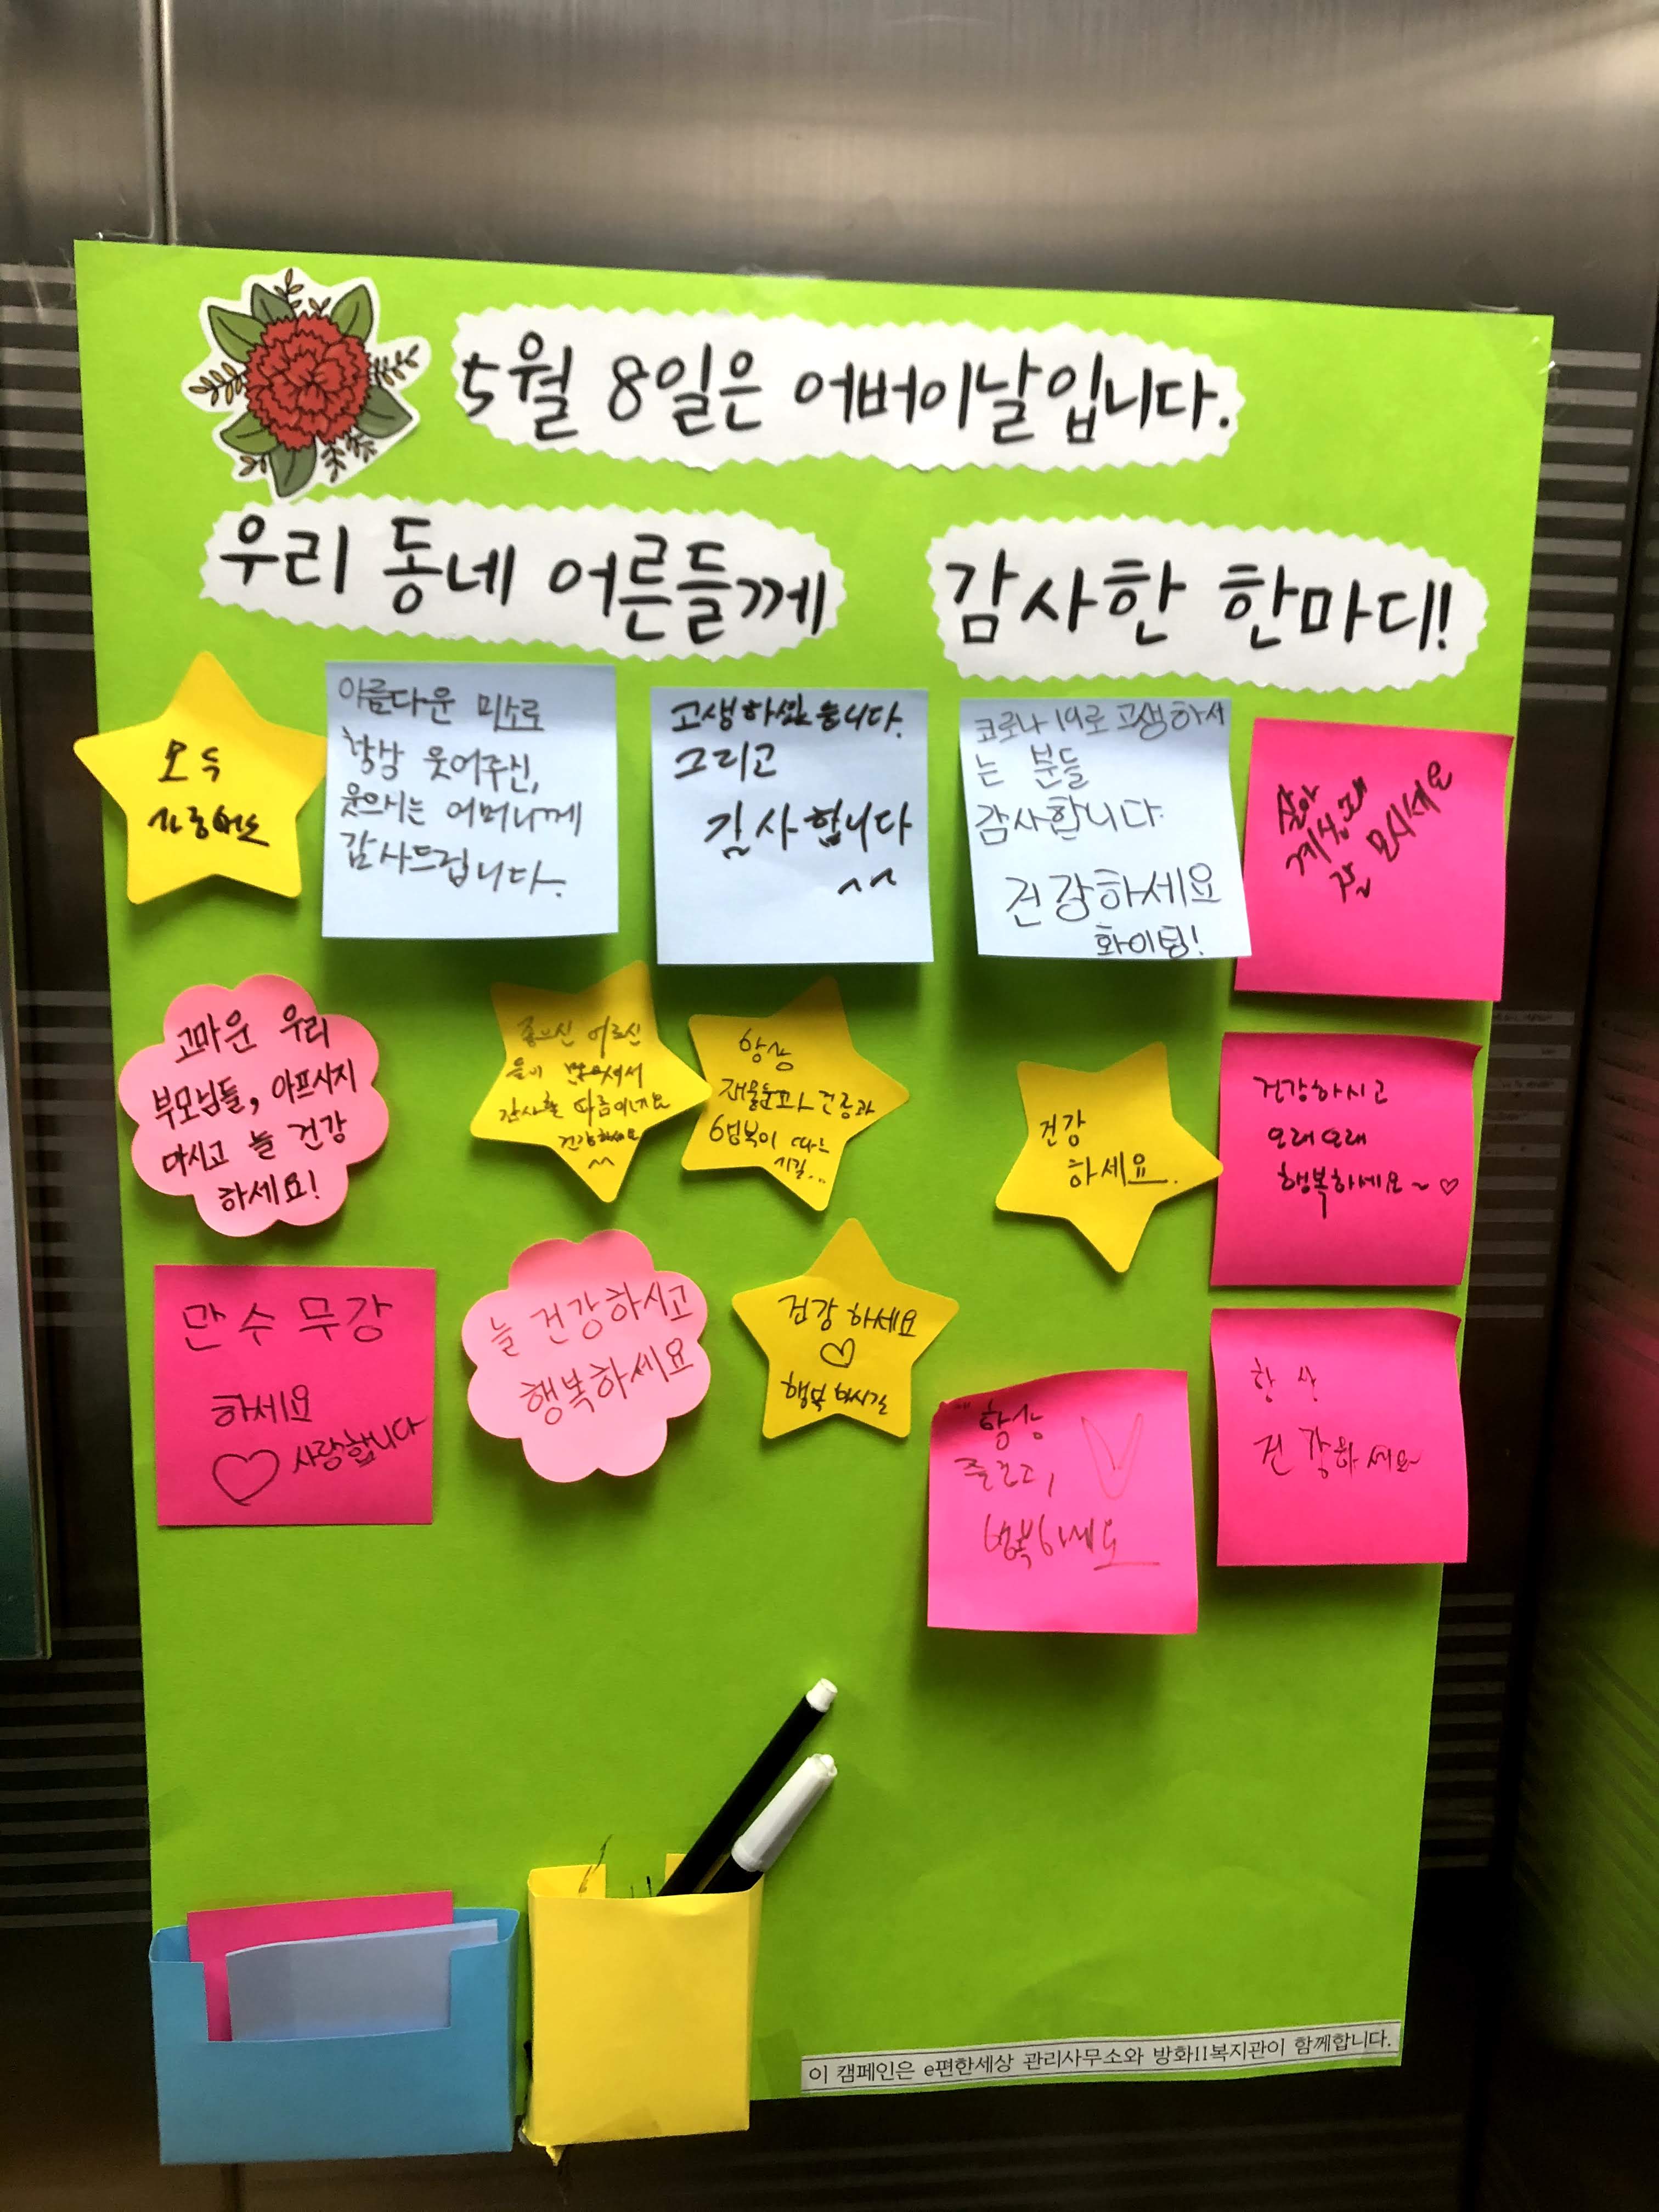 5월 8일은 어버이날입니다.
우리 동네 어른들께
감사한 한마디!
모두
사랑해요
아름다운 미소로
항상 웃어주신,
웃으시는 어머니께
감사드립니다.
고생하셨습니다.
그리고
감사합니다
^^
코로나 19로 고생하시
는 분들
감사합니다
건강하세요
화이팅!
살아
계실때
잘 모시세요
고마운 우리
부모님들, 아프시지
마시고 늘 건강
하세요!
좋으신 어르신
들이 많으셔서
감사할 따름이네요
건강하세요
^^
항상
건강과
행복이
건강
하세요.
건강하시고
오래오래
행복하세요~♡
만수무강
하세요
♡ 사랑합니다
늘 건강하시고
행복하세요
건강하세요
♡
행복하시길
항상
즐겁고,
행복하세요
항상
건강하세요
이 캠페인은 e편한세상 관리사무소와 방화11복지관이 함께합니다.